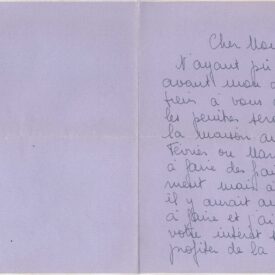 Cher Mon
N'ayant pu
avant mon d
à vous
les peintres ser
la maison au
Février ou Mar
à faire des frai
ment mais a
il y aurait au
à faire et j'ai
votre intérêt
profiter de la